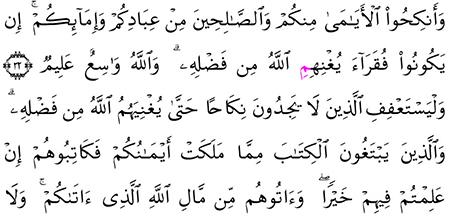 وَأَنكِحُوا۟ ٱلْأَيَـٰمَىٰ مِنكُمْ وَٱلصَّـٰلِحِينَ مِنْ عِبَادِكُمْ وَإِمَآئِكُمْ ۚ إِن
يَكُونُوا۟ فُقَرَآءَ يُغْنِهِمُ ٱللَّهُ مِن فَضْلِهِۦ ۗ وَٱللَّهُ وَٰسِعٌ عَلِيمٌ ﴿٣٢﴾
وَلْيَسْتَعْفِفِ ٱلَّذِينَ لَا يَجِدُونَ نِكَاحًا حَتَّىٰ يُغْنِيَهُمُ ٱللَّهُ مِن فَضْلِهِۦ ۗ
وَٱلَّذِينَ يَبْتَغُونَ ٱلْكِتَـٰبَ مِمَّا مَلَكَتْ أَيْمَـٰنُكُمْ فَكَاتِبُوهُمْ إِنْ
عَلِمْتُمْ فِيهِمْ خَيْرًا ۖ وَءَاتُوهُم مِّن مَّالِ ٱللَّهِ ٱلَّذِىٓ ءَاتَىٰكُمْ ۚ وَلَا